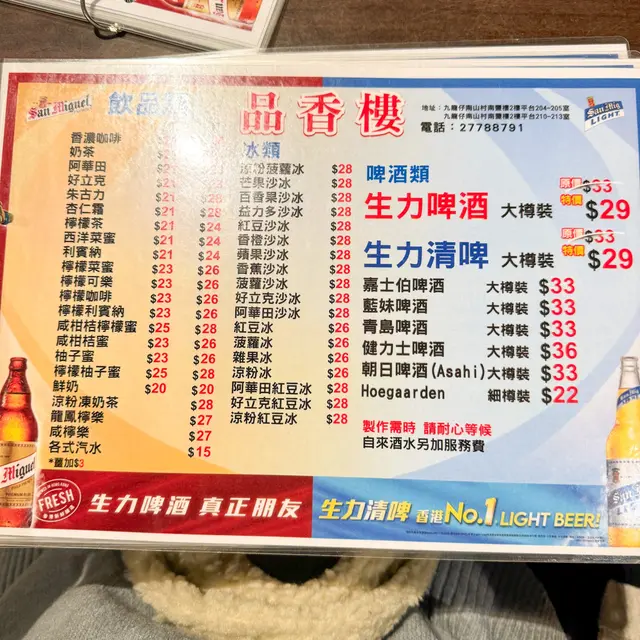 San Miguel
飲品類
品香樓
地址：九龍仔南山村南豐樓2樓平台204-205室
九龍仔南山村南豐樓2樓平台210-213室
電話：27788791
San Mig LIGHT
香濃咖啡
奶茶
阿華田 $21
好立克 $21
朱古力 $21
杏仁霜 $21 $28
檸檬茶 $21 $24
西洋菜蜜 $21 $24
利賓納 $21 $24
檸檬菜蜜 $23 $26
檸檬可樂 $23 $26
檸檬咖啡 $23 $26
檸檬利賓納 $23 $26
咸柑桔檸檬蜜 $25 $28
咸柑桔蜜 $23 $26
柚子蜜 $23 $26
檸檬柚子蜜 $25 $28
鮮奶 $20 $20
涼粉凍奶茶 $28
龍鳳檸樂 $27
咸檸樂 $27
各式汽水 $15
*薑加$3
冰類
涼粉菠蘿冰 $28
芒果沙冰 $28
百香果沙冰 $28
益力多沙冰 $28
紅豆沙冰 $28
香橙沙冰 $28
蘋果沙冰 $28
香蕉沙冰 $28
菠蘿沙冰 $28
好立克沙冰 $28
阿華田沙冰 $28
紅豆冰 $26
菠蘿冰 $26
雜果冰 $26
涼粉冰 $26
阿華田紅豆冰 $28
好立克紅豆冰 $28
涼粉紅豆冰 $28
啤酒類
原價$33
生力啤酒 大樽裝 特價$29
原價$33
生力清啤 大樽裝 特價$29
嘉士伯啤酒 大樽裝 $33
藍妹啤酒 大樽裝 $33
青島啤酒 大樽裝 $33
健力士啤酒 大樽裝 $36
朝日啤酒(Asahi) 大樽裝 $33
Hoegaarden 細樽裝 $22
製作需時 請耐心等候
自來酒水另加服務費
Miguel
FRESH
生力啤酒 真正朋友
生力清啤 香港No.1 LIGHT BEER!